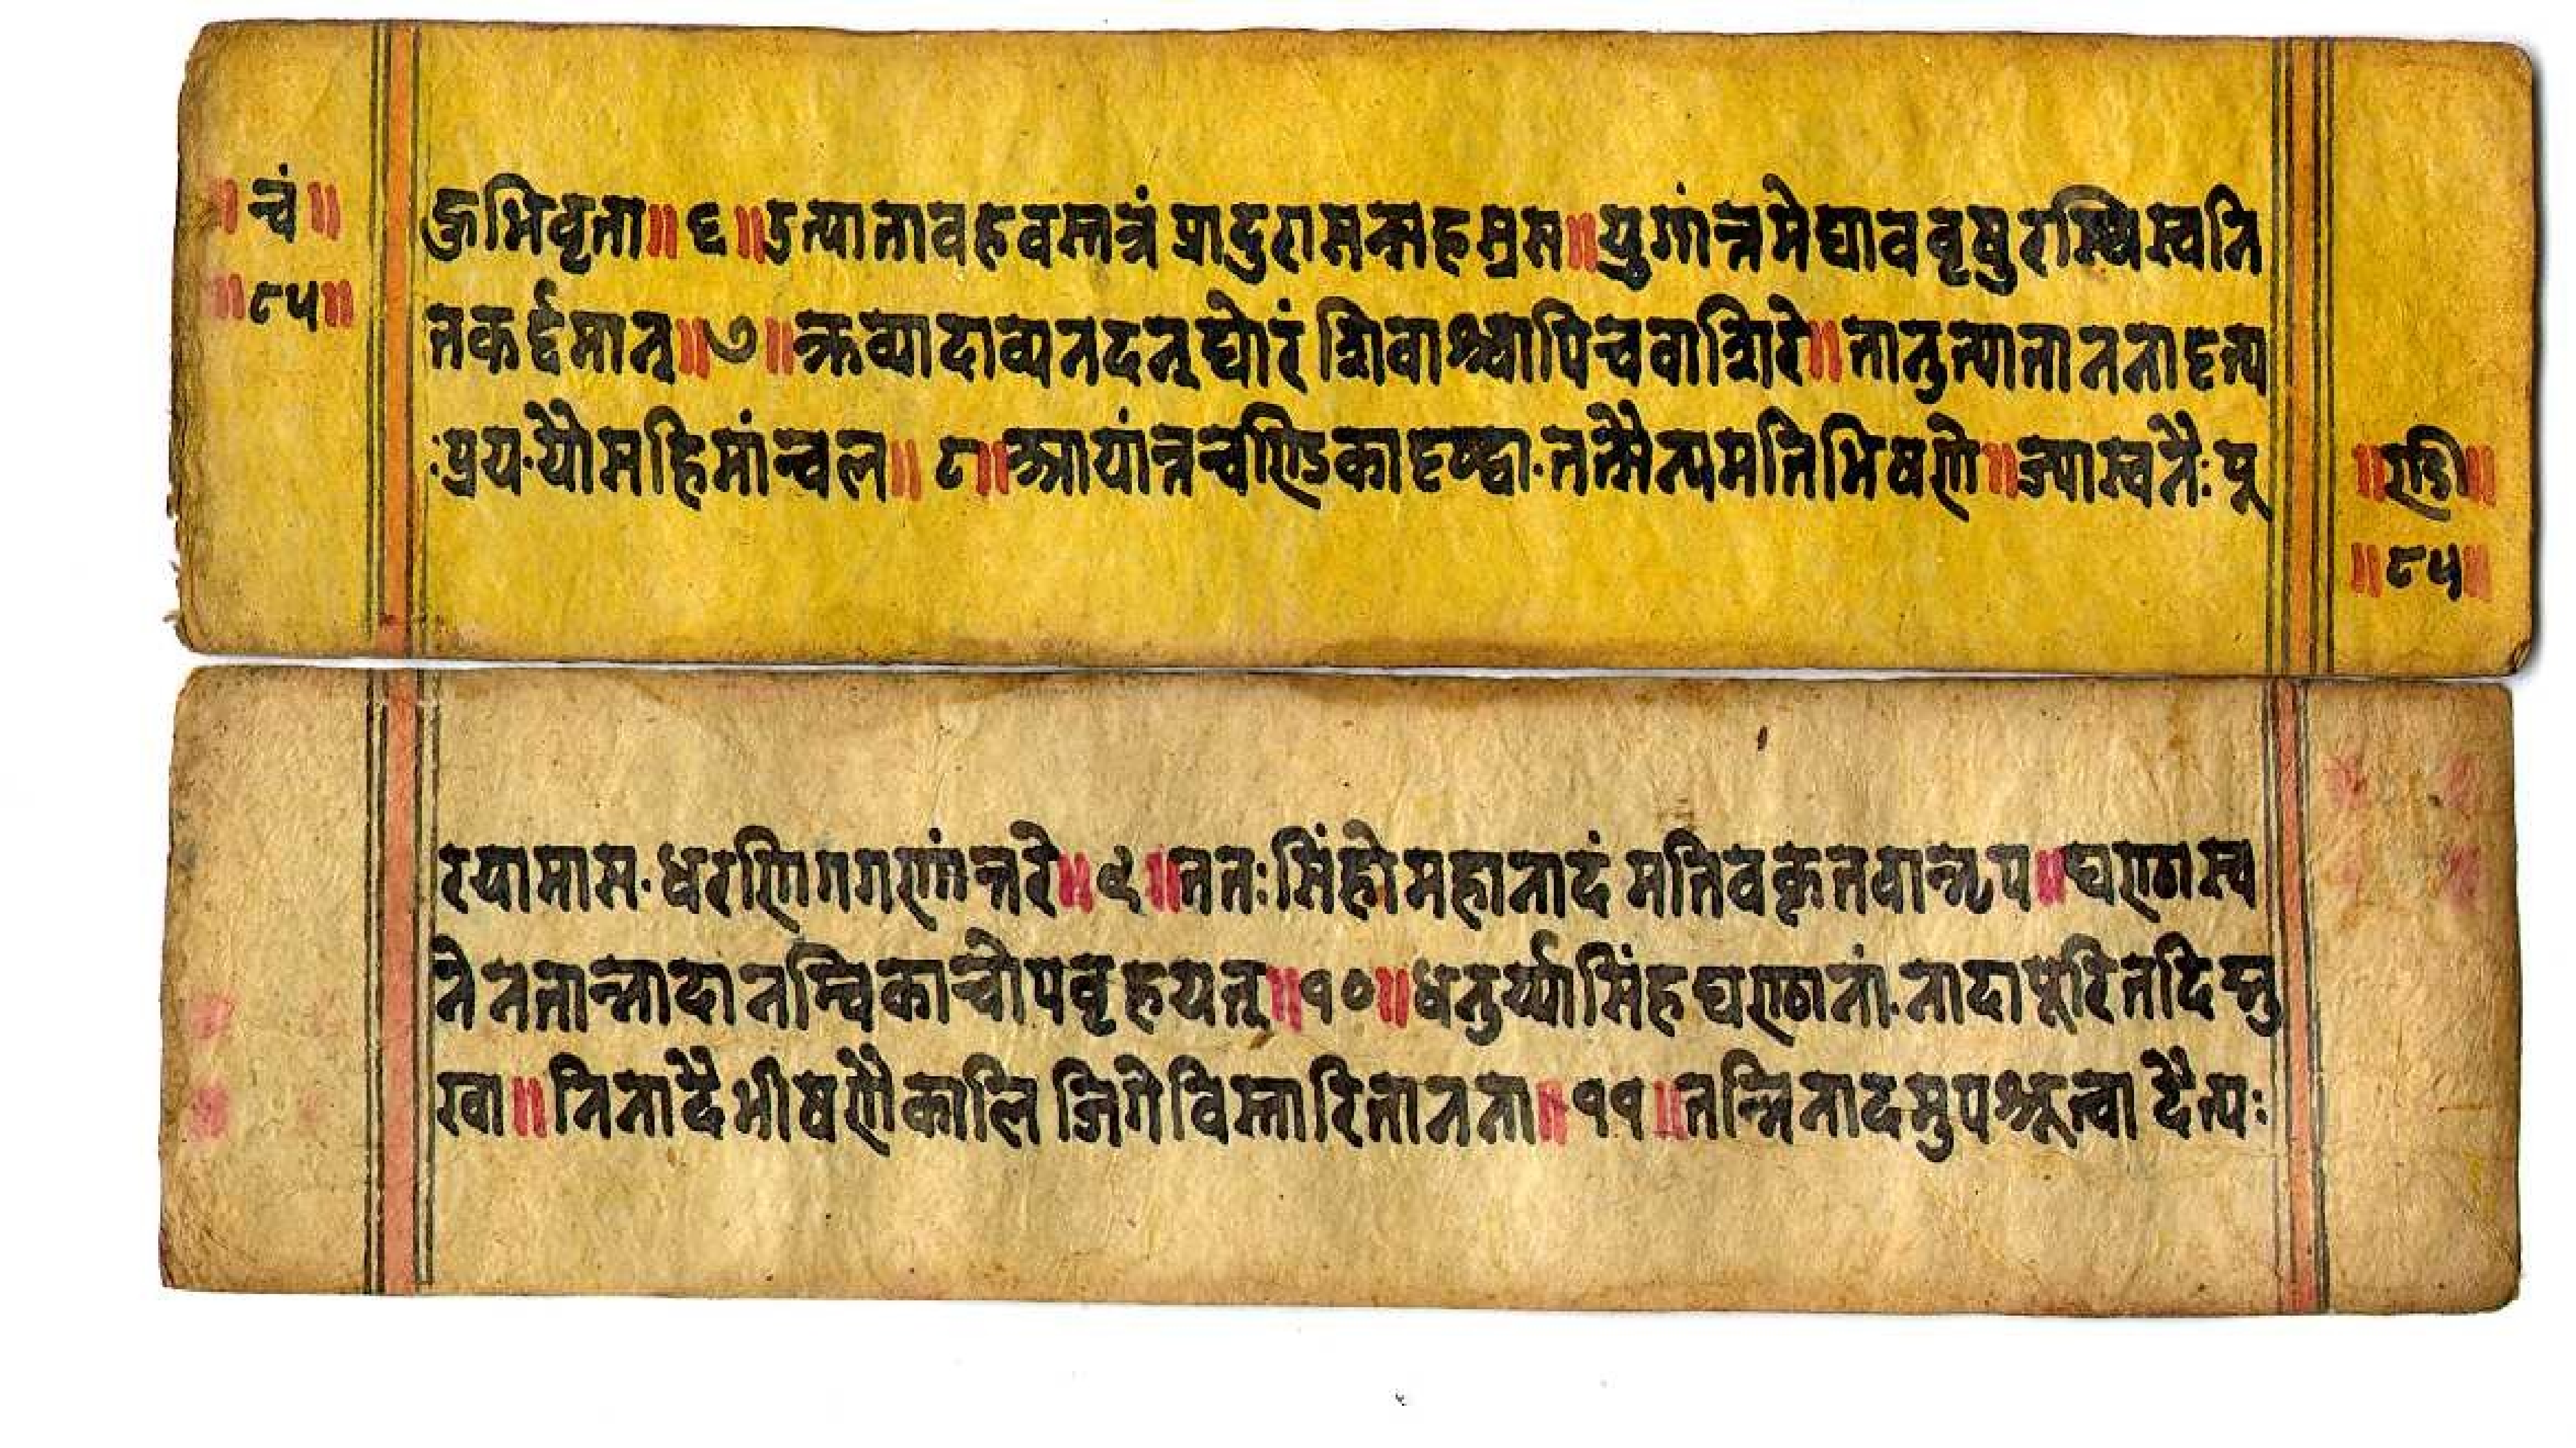 ॥ चं ॥
॥ ८५ ॥
ऊभिवृता ॥ ६ ॥ उत्पातावहवस्तत्रं प्रादुरासन्सहस्रस ॥ युगांन्तमेघाववृषुरस्थिस्वनि
तकर्द्दमान् ॥ ७ ॥ क्रव्यादाव्यनदन्घोरं शिवाश्चापिचवाशिरे ॥ तानुत्पाताननादृत्य
:प्रय·यौमहिमांन्वल ॥ ८ ॥ आयांन्तचण्डिकादृष्ट्वा·तत्सैन्यमतिभिषणे ॥ ज्यास्वनै:पू
॥ ण्डी ॥
॥ ८५ ॥
रयामास·धरणिगगणांन्तरे ॥ ९ ॥ तत:सिंहोमहानादं मतिवकृतवान्नृप ॥ घण्ठास्व
नेनतान्नादानम्विकाचोपवृहयत् ॥ १० ॥ धनुर्य्यासिंहघण्ठानां·नादापूरितदिङ्मु
खा ॥ निनादैभीषणैकालि जिगेविस्तारितानना ॥ ११ ॥ तन्निनादमुपश्रूत्वा दैत्य: